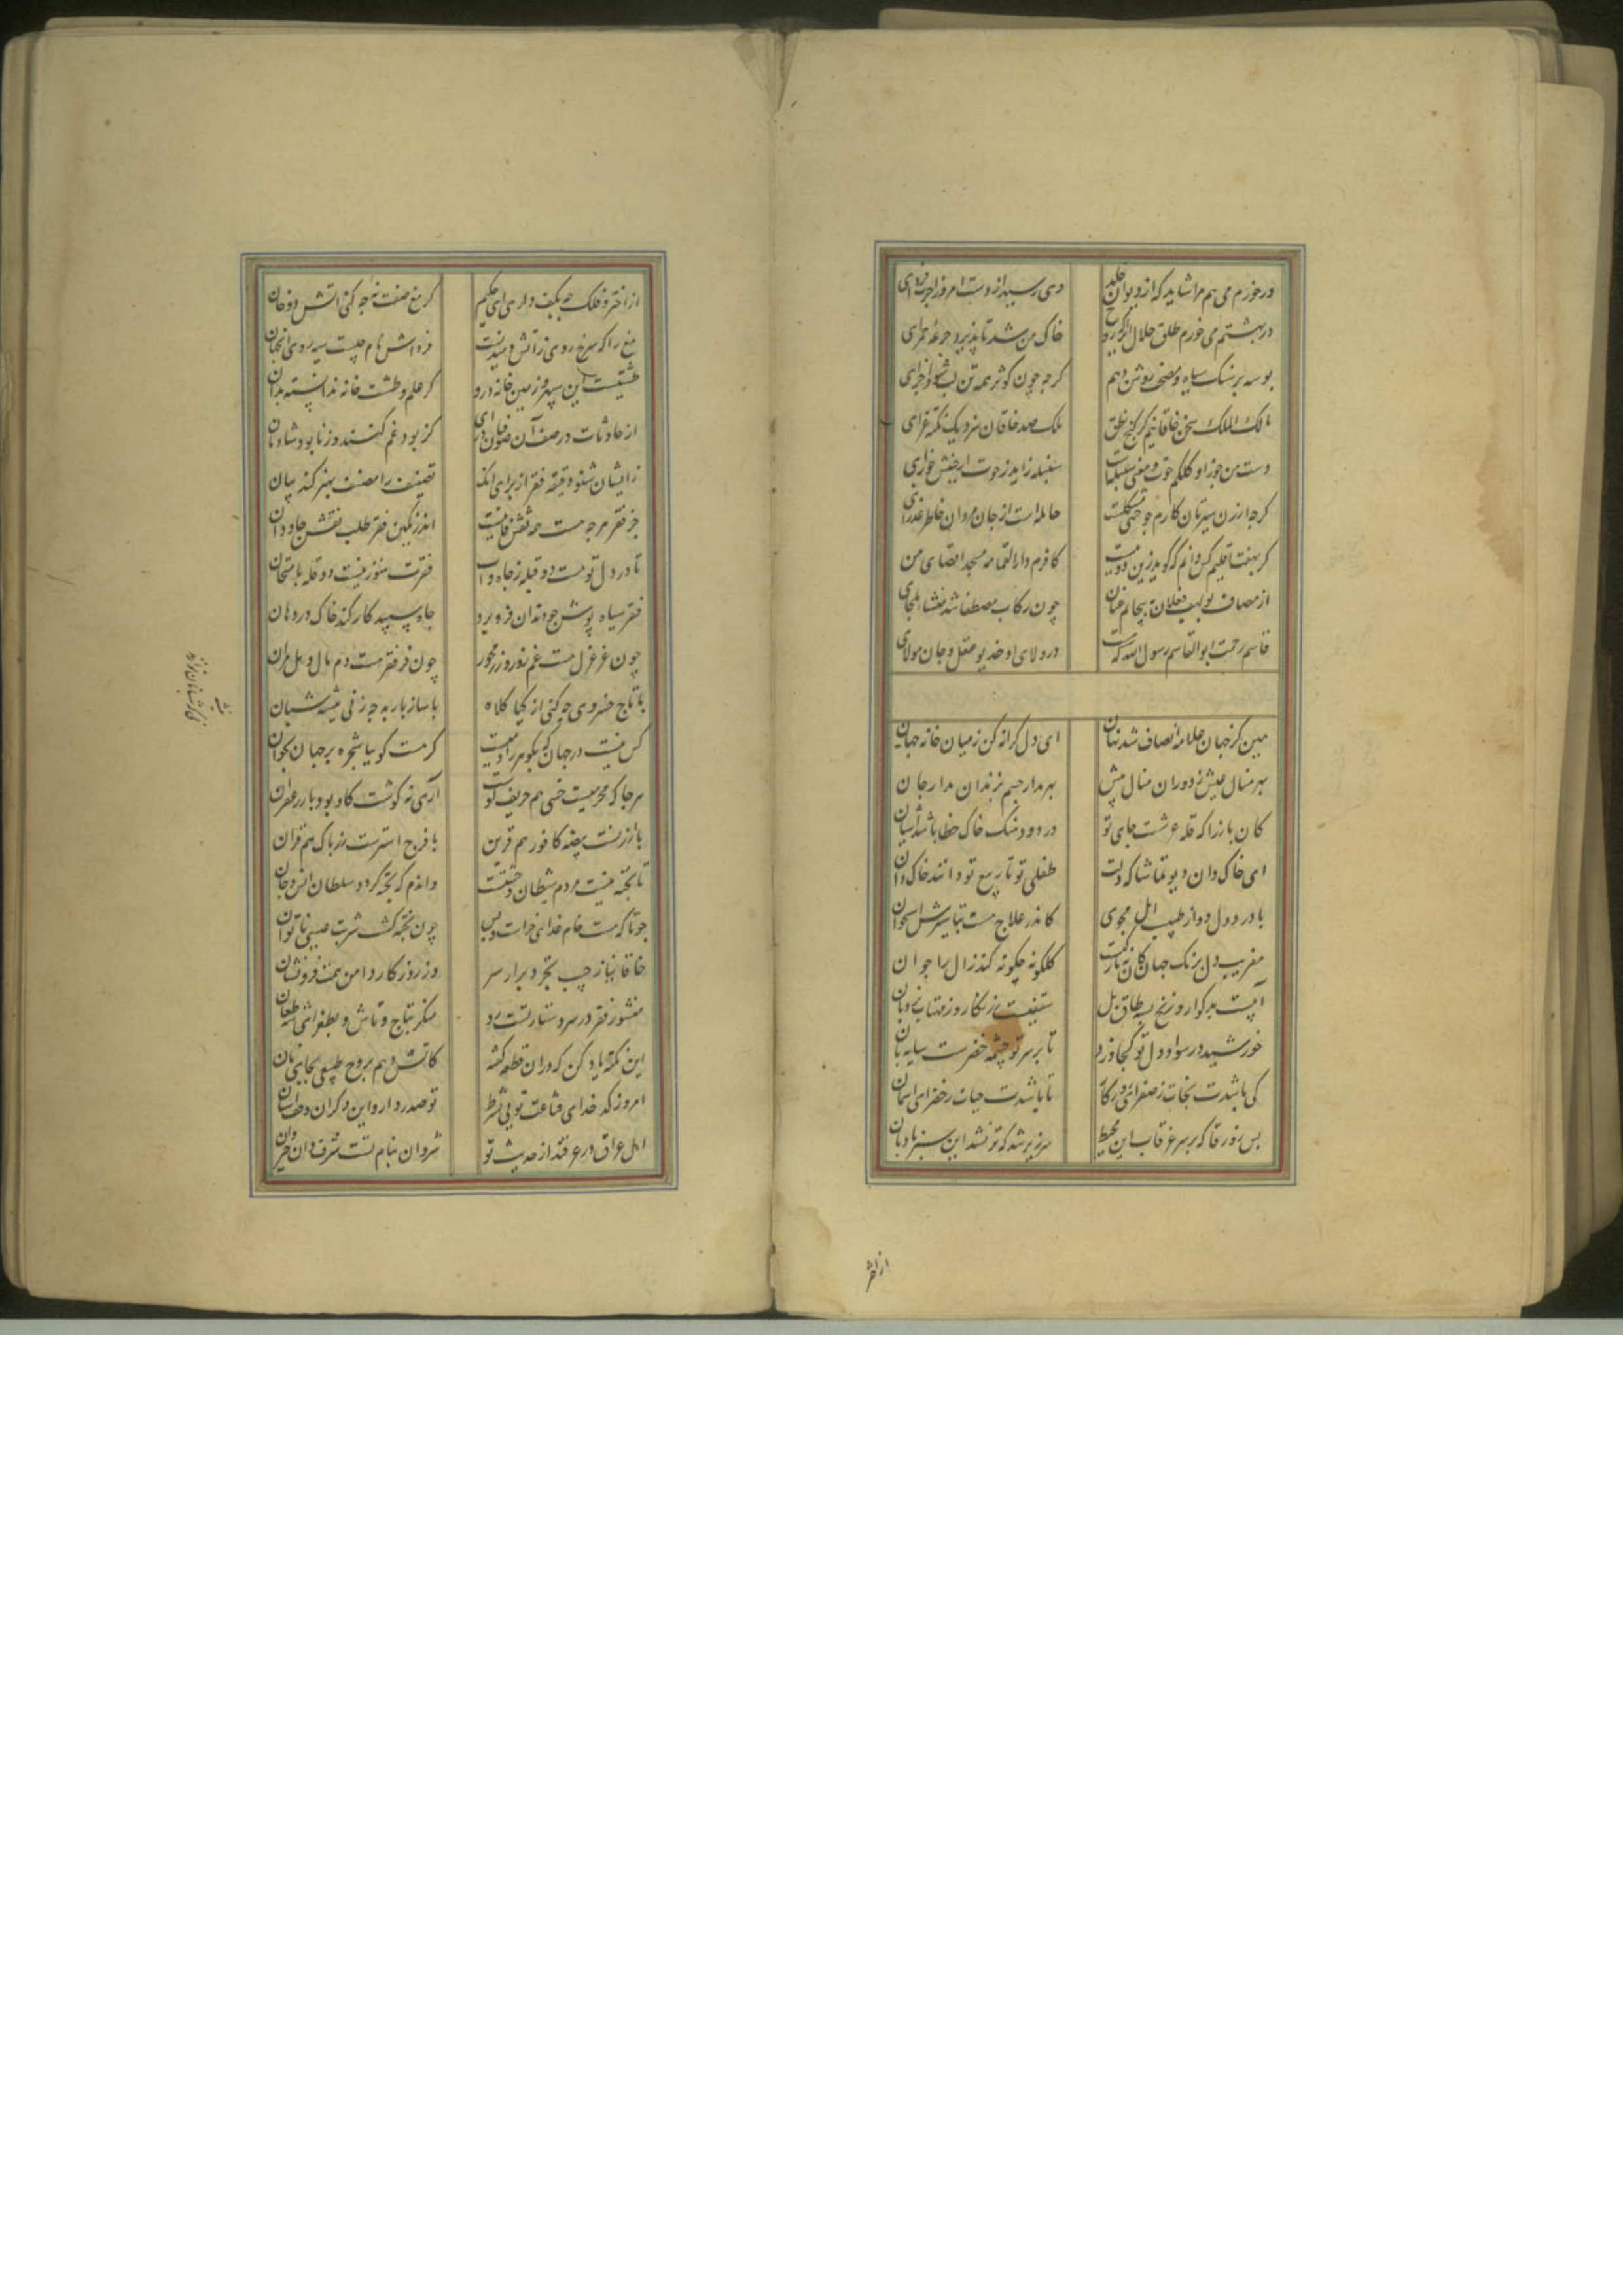 ورخورم می هم مرا شاید که از دیوان خلد
دی رسید از دست امروز اجرت فردای
در بهشتم می خورم طلق حلال
خاک من شد تا پذیرد جرعه حمرای
بوسه بر سنک سیاه و مصحف روشن دهم
کرجه چون کوثر همه تن لب شود اجزای
مالک الملک سخن خاقانیم کز کنج نطق
ملک صد خاقان بود یک نکته غرای
دست من جوزا و کلکم حوت و معنی سنبلست
سنبله زاید ز حوت از جنبش جوزای
کرجه از زن سیرتان کارم جو خنثی مشکلست
حامله است از جان مردان خاطر عذرای
کر بهفت اقلیم کس دانم که کوید زین دو بیت
کافرم دار القمامه مسجد اقصای من
از مصاف بولهب فعلان نپیچانم عنان
چون رکاب مصطفا شد ملجای
قاسم رحمت ابو القاسم رسول الله که هست
در ولای او خدیو عقل و جان مولای
هین کز جهان علامه انصاف شد نهان
ای دل کرانه کن ز میان خانه جهان
بهر منال عیش ز دوران منال بیش
بهر مدار جسم بزندان مدار جان
کان باز را که قله عرشست جای تو
در دود سنک خاک خطا باشد آشیان
ای خاک دان دیو تماشا که دلت
طفلی تو تا ربیع تو دانند خاک دان
با درد دل دوا ز طبیب امل مجوی
کاندر علاج هست تباشیرش استخوان
مفریب دل برنک جهان کان نه تازکیست
کلکونه چکونه کند زال را جوان
آبیست بد کوار و ز یخ بسته طاق پل
سقفیست زرنکار و ز مهتاب نردبان
خورشید در سواد دل تو کجا رود
تا بر سر تو چشمه خضرست سایه بان
کی باشدت نجات ز صفرای روزکار
تا باشدت حیات ز خضرای اسمان
بس زورقا که بر سر غرقاب این محیط
سر زیر شد که تر نشد این سبز بادبان
از اختر
از اختر و فلک چه بکف داری ای حکیم
کر مغ صفت نه چه کنی اتش و دخان
مغ را که سرخ روی ز آتش دمیدنست
فرداش نام چیست سیه روی انجهان
طشتیست این سپهر و زمین خانه درو
کر علم طشت و خانه ندانسته بدان
از حادثات در صف آن صوفیان
کز بود غم کنند و ز نابود شادمان
ز ایشان شنو دقیقه فقر از برای انک
تصنیف را مصنف بهتر کند بیان
جز فقر هرجه هست همه نقش فانیست
اندر نکین فقر طلب نقش جاودان
تا در دل تو هست دو قبله ز جاه و آب
فقرت هنوز نیست دو قله بامتحان
فقر سیاه پوش جو دندان فرو برد
جاه سپید کار کند خاک در دهان
چون عز عزل هست غم زور و زر مخور
چون فر فقر هست دم مال و مل مران
با تاج خسروی چه کنی از کیا کلاه
با ساز باربد چه زنی پیشه شبان
کس نیست در جهان که بکوهر ز آدمیست
کر هست کو بیا شجره بر جهان بخوان
هرجا که محرمیست خسی هم حریف اوست
آری نه کوشت کاو بود بار زعفران
با ارزنست بیضه کافور هم قرین
با فرج استرست زر پاک هم قران
تا پخته نیست مردم شیطان و وحشیست
واندم که پخته کردد سلطان انس و جان
جو تا که هست خام غذای خرست و بس
چون پخته کشت شربت عیسی ناتوان
خاقانیا ز جیب تجرد برار سر
وز روزکار دامن همت فرو فشان
منشور فقر در سر دستار تست رو
منکر بتاج تاش و بطغرای
این نکته یاد کن که دران قطعه کفته
کاتش دهم بروح طبیعی بجای نان
امروز کد خدای قناعت توئی بشرط
تو صدر دار و این دکران وقف استان
اهل عراق در عرقند از حدیث تو
شروان بنام تست شرف وان و خیروان